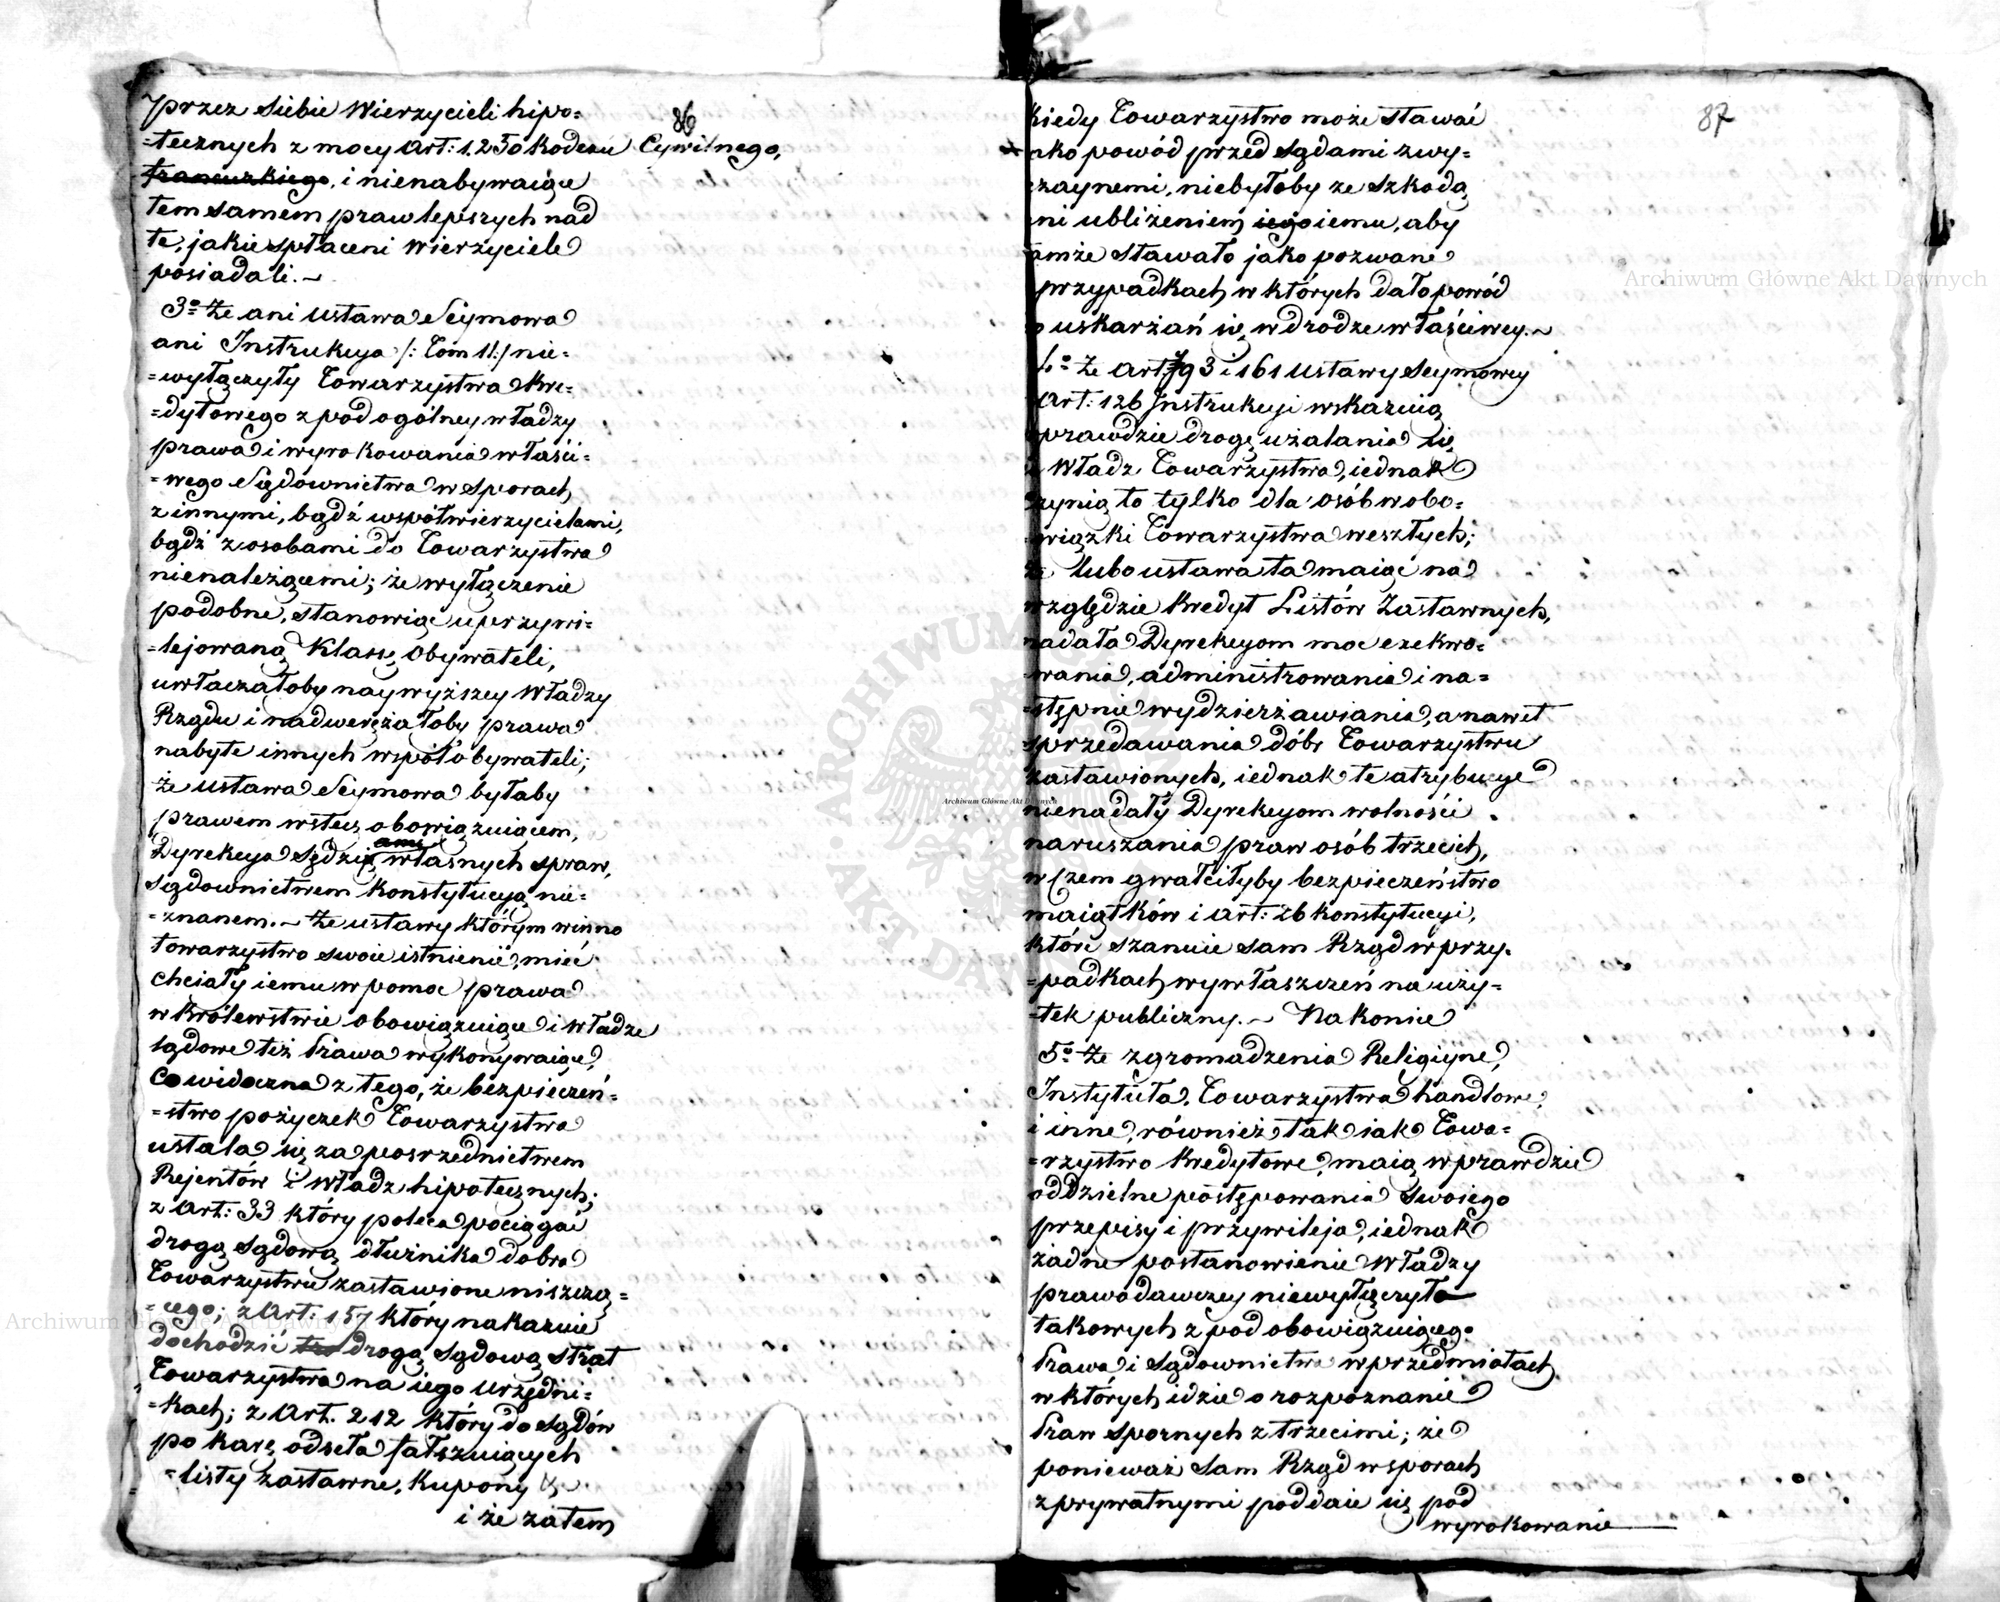 86
przez siebie Wierzycieli hipo=
=tecznych z mocy Art: 1,250 kodexu Cywilnego,
francuzkiego, i nienabywaiące
tem samem praw lepszych nad
te, jakie spłaceni Wierzyciele
posiadali. –
3º że ani ustawa Seymowa
ani Instrukcya /: Tom II :/ nie=
=wyłączyły Towarzystwa Kre=
=dytowego z pod ogólney władzy
prawa i wyrokowania właści=
=wego Sądownictwa w sporach
z innymi, bądź współwierzycielami,
bądź z osobami do Towarzystwa
nienależącemi; że wyłączenie
podobne, stanowiąc uprzywi=
=lejowaną Klassę Obywateli,
uwłaczałoby naywyższey Władzy
Rządu i nadwerężałoby prawa
nabyte innych współobywateli;
że ustawa Seymowa byłaby
prawem wstecz obowiązuiącem,
Dyrekcya Sędzią własnych spraw,
ami
sądownictwem konstytucyą nie=
=znanem. – że ustawy którym winno
towarzystwo swoie istnienie, mieć
chciały iemu w pomoc prawa
w Królewstwie obowiązuiące i władze
sądowe też Prawa wykonywaiące,
Co widoczna z tego, że bezpieczeń=
=stwo pożyczek Towarzystwa
ustala się za posrzednictwem
Rejentów i władz hipotecznych;
z Art: 33 który poleca pociągać
drogą sądową dłużnika dobra
Towarzystwu zastawione niszczą=
=cego; z Art: 157 który nakazuie
dochodzić drogą sądową strat
Towarzystwa na iego Urzędni=
=kach; z Art. 212 który do Sądów
po karę odseła fałszuiących
=listy zastawne, Kupony &c
i że zatem
87
kiedy Towarzystwo może stawać
ako powód przed Sądami zwy=
czaynemi, niebyłoby ze szkodą
ni ubliżeniem iego iemu, aby
amże stawało jako pozwane
przypadkach w których dało powód
o uskarżań się w drodze właściwey. –
4º że Art: 93 i 161 ustawy Seymowey
Art: 126 Instrukcyi wskazuią
prawdzie drogę użalania się
Władz Towarzystwa, iednak
zynią to tylko dla osób w obo=
wiązki Towarzystwa weszłych;
że lubo ustawa ta maiąc na
względzie kredyt Listów Zastawnych,
nadała Dyrekcyom moc exekwo=
=wania, administrowania i na=
=stępnie wydzierżawiania, a nawet
sprzedawania dóbr Towarzystwu
zastawionych, iednak te atrybucye
nienadały Dyrekcyom wolności
naruszania praw osób trzecich,
w czem gwałciłyby bezpieczeństwo
maiątków i Art: 26 konstytucyi,
które szanuie sam Rząd w przy=
=padkach wywłaszczeń na uży=
=tek publiczny. – Nakoniec
5º że zgromadzenia Religiyne,
Instytuta, Towarzystwa handlowe,
i inne, również tak iak Towa=
=rzystwo Kredytowe, maią wprawdzie
oddzielne postępowania swoiego
przepisy i przywileja, iednak
żadne postanowienie Władzy
prawodawczey niewyłączyło
takowych z pod obowiązuiącego
Prawa i Sądownictwa w przedmiotach
w których idzie o rozpoznanie
Praw spornych z trzecimi; że
ponieważ sam Rząd w sporach
z prywatnymi poddaie się pod
wyrokowanie
Archiwum Główne Akt Dawnych
Archiwum Główne Akt Dawnych
Archiwum Główne Akt Dawnych